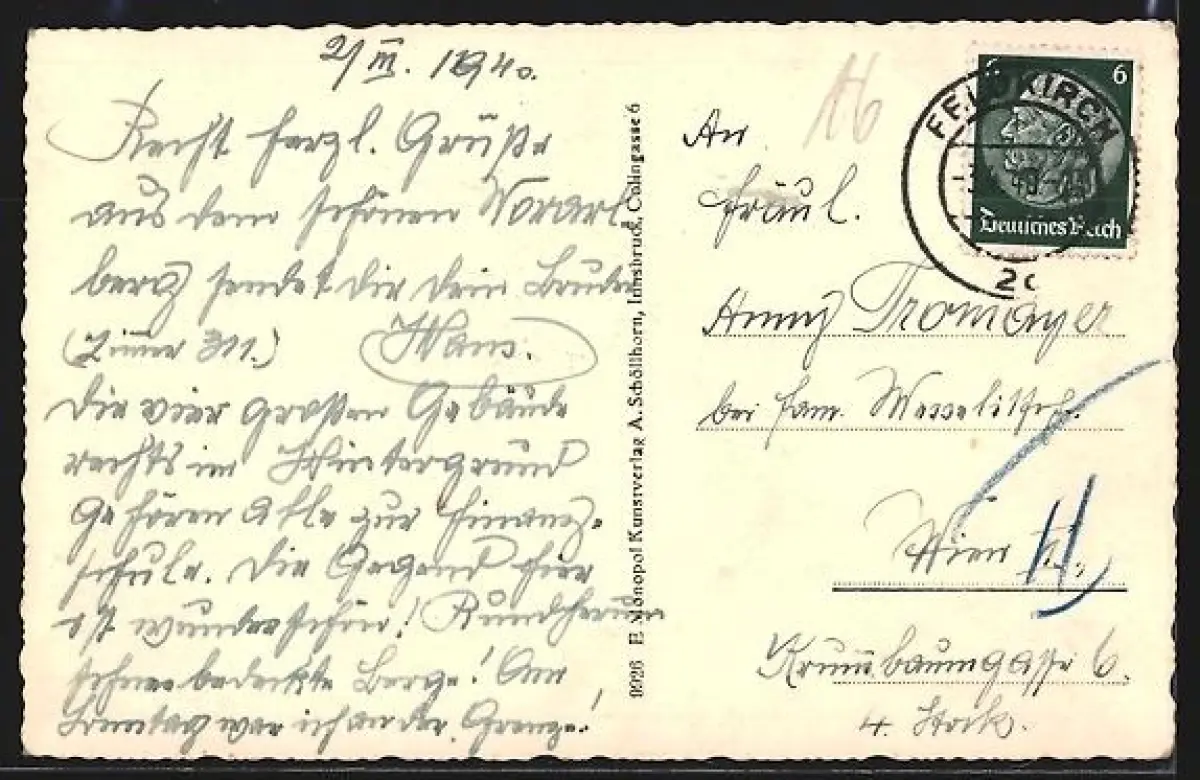 2/III. 1940.
Recht herzl. Grüße
aus dem schönen Vorarl
berg sendet Dir Dein Bruder
(Zimmer 311.) Hans.
Die vier großen Gebäude
rechts im Hintergrund
gehören alle zur Finanz-
schule. Die Gegend hier
ist wunderschön! Rundherum
schneebedeckte Berge! Am
Sonntag war ich an der Grenze!
9926 E Monopol Kunstverlag A. Schöllhorn, Innsbruck, Colingasse 6
6
Deutsches Reich
FELDKIRCH
An
Fräul.
Anny Tromayer
bei Fam.
Wien II,
Krummbaumgasse 6.
4. Stock.